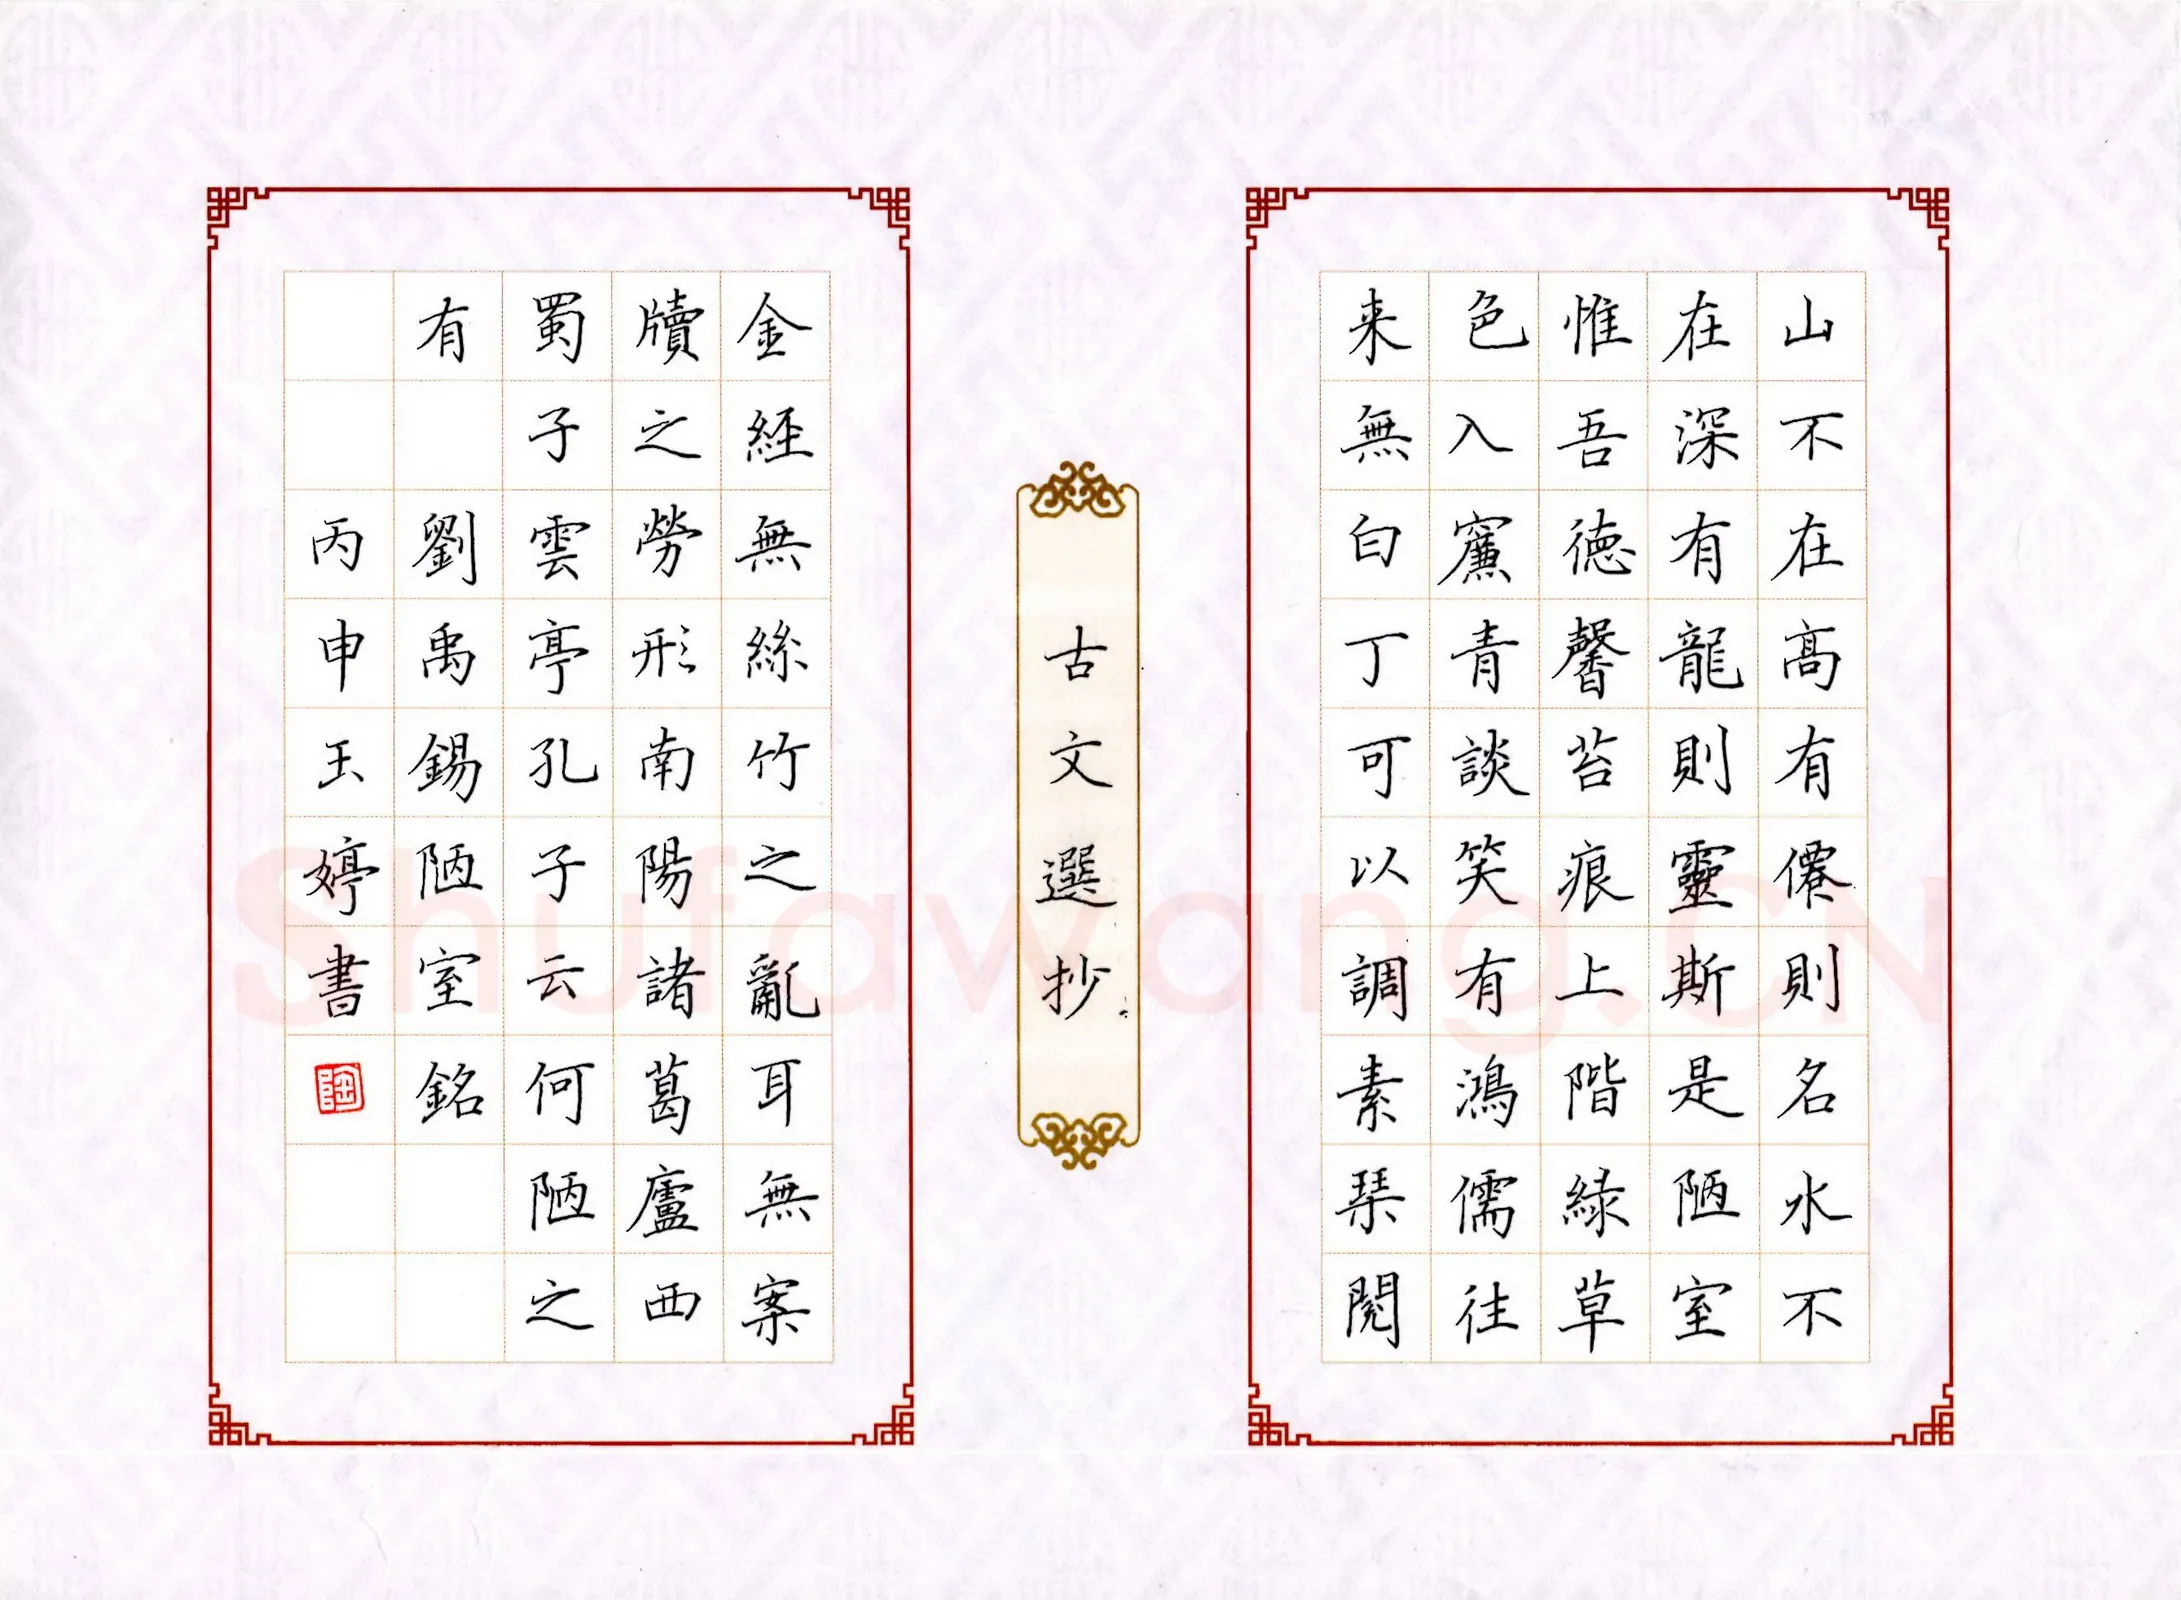 山不在高有僊則名水不
在深有龍則靈斯是陋室
惟吾德馨苔痕上階緑草
色入簾青談笑有鴻儒往
来無白丁可以調素琴閲
古文選抄
金經無絲竹之亂耳無案
牘之勞形南陽諸葛廬西
蜀子雲亭孔子云何陋之
有 劉禹錫陋室銘
丙申玉婷書
陶
Shufawang.CN